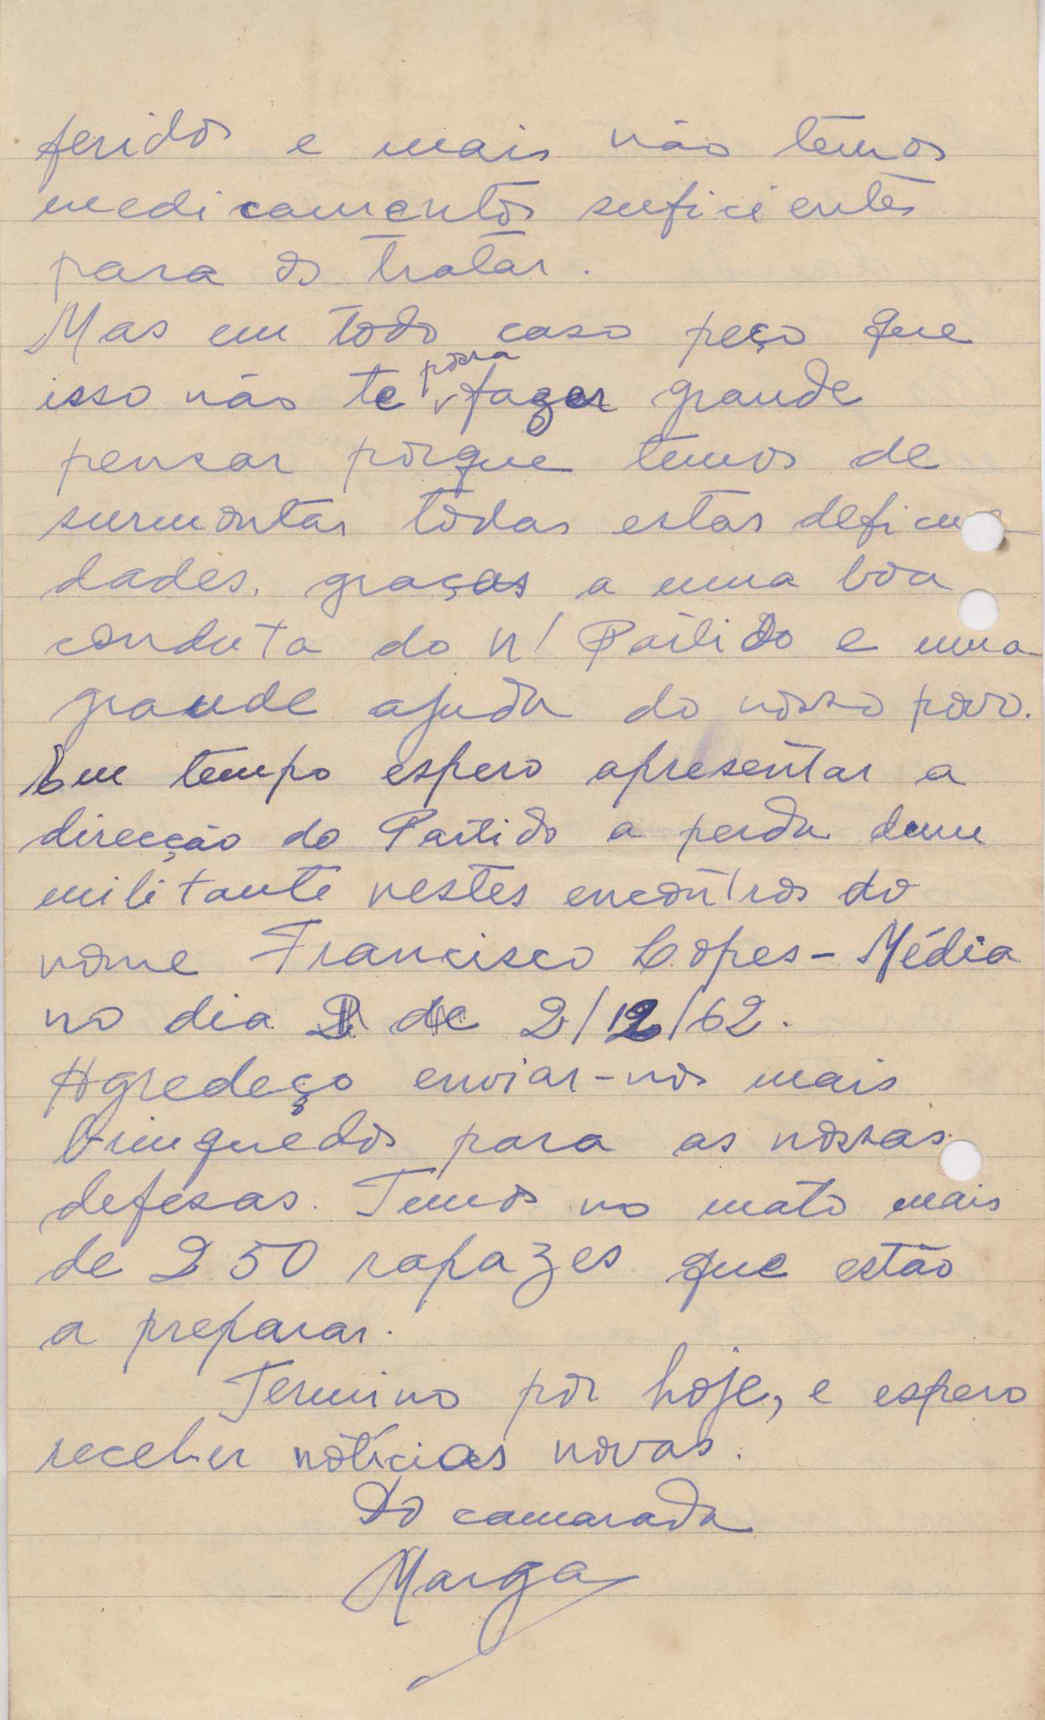 feridos e mais não temos
medicamentos suficientes
para os tratar.
Mas em todo caso peço que
isso não te possa fazer grande
pensar porque temos de
surmontar todas estas deficul
dades. graças a uma boa
conduta do n/ Partido e uma
grande ajuda do nosso povo.
Em tempo espero apresentar a
direcção do Partido a perda dum
militante nestes encontros do
nome Francisco Lopes - Média
no dia de 2/12/62.
Agredeço enviar-nos mais
brinquedos para as nossas
defesas. Temos no mato mais
de 250 rapazes que estão
a preparar.
Termino por hoje, e espero
receber notícias novas.
Do camarada
Marga